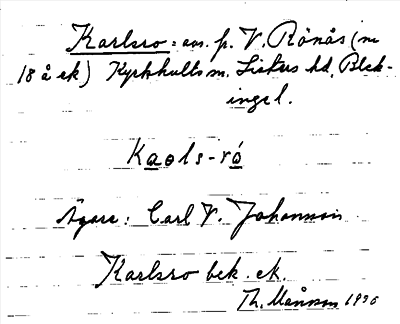 Karlsro = avs. fr. V. Rönås (nr
18 å ek) Kyrkhults sn. Listers hd, Blek-
inge l.
Kaols-ró
Ägare: Carl V. Johansson
Karlsro bek. ek.
Th. Månsson 1930